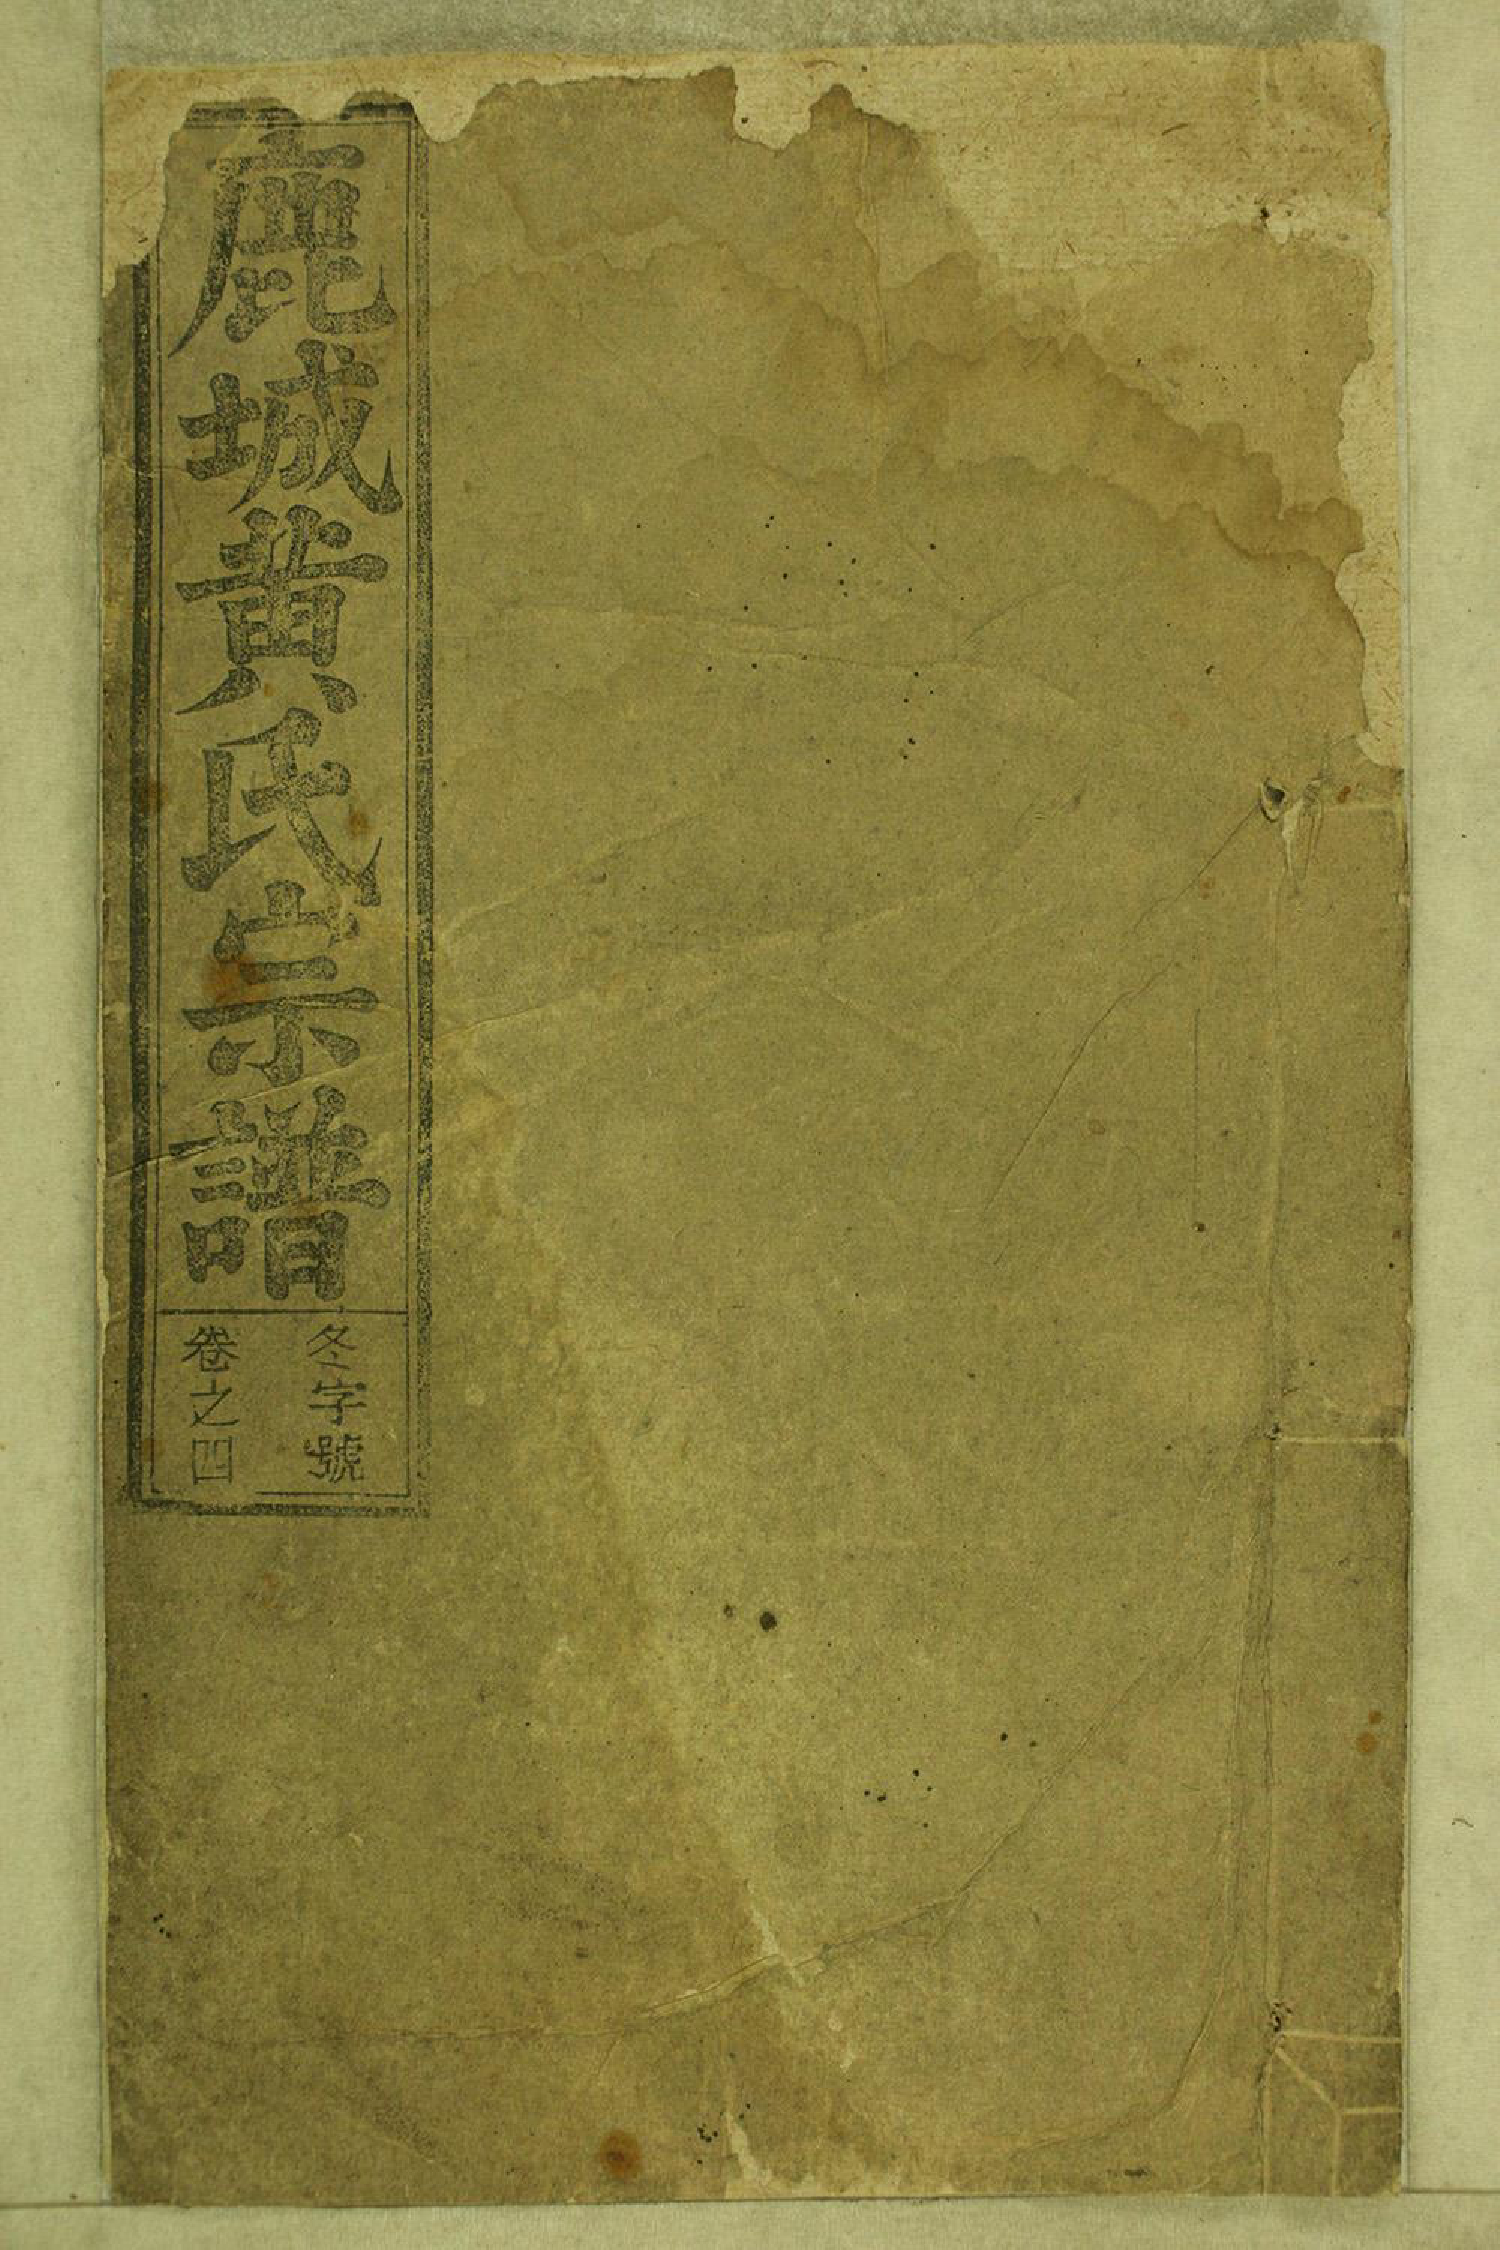 鹿城黃氏宗譜
冬字號
卷之四